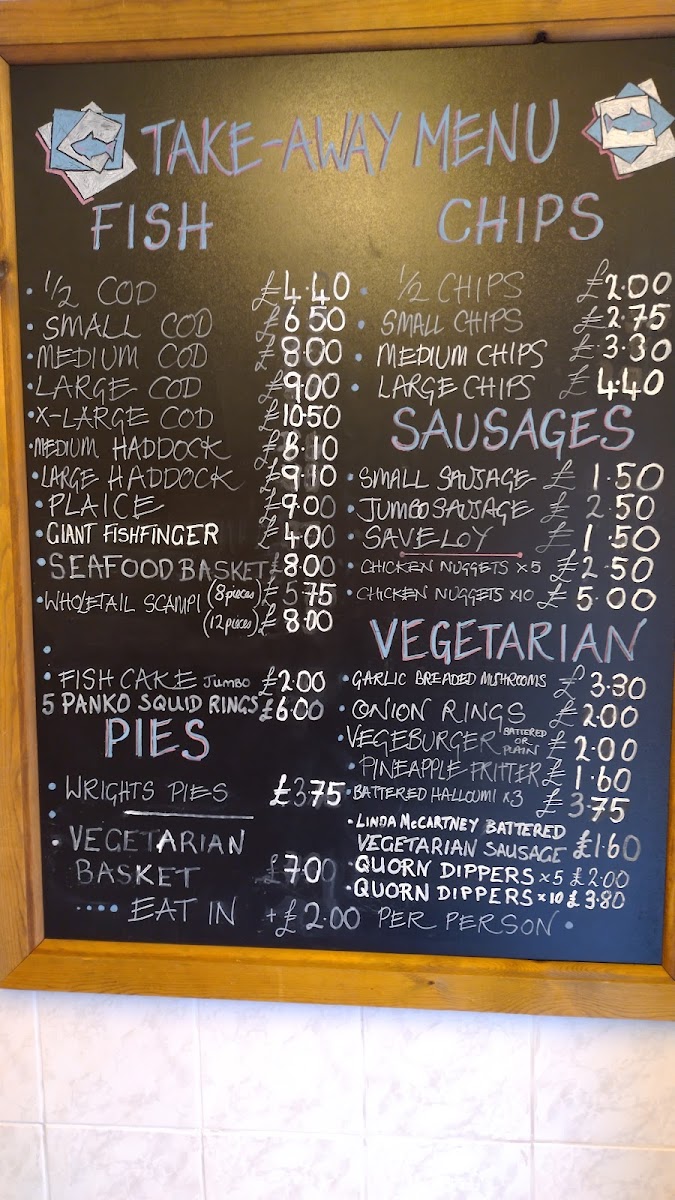 TAKE-AWAY MENU
FISH
½ COD £4.40
SMALL COD £6.50
MEDIUM COD £8.00
LARGE COD £9.00
X-LARGE COD £10.50
MEDIUM HADDOCK £8.10
LARGE HADDOCK £9.10
PLAICE £9.00
GIANT FISHFINGER £4.00
SEAFOOD BASKET £8.00
WHOLETAIL SCAMPI (8 pieces) £5.75
(12 pieces) £8.00
FISH CAKE JUMBO £2.00
5 PANKO SQUID RINGS £6.00
PIES
WRIGHTS PIES £3.75
VEGETARIAN
BASKET £7.00
CHIPS
½ CHIPS £2.00
SMALL CHIPS £2.75
MEDIUM CHIPS £3.30
LARGE CHIPS £4.40
SAUSAGES
SMALL SAUSAGE £1.50
JUMBO SAUSAGE £2.50
SAVELOY £1.50
CHICKEN NUGGETS x5 £2.50
CHICKEN NUGGETS x10 £5.00
VEGETARIAN
GARLIC BREADED MUSHROOMS £3.30
ONION RINGS £2.00
VEGEBURGER BATTERED OR PLAIN £2.00
PINEAPPLE FRITTER £1.60
BATTERED HALLOUMI x3 £3.75
LINDA McCARTNEY BATTERED
VEGETARIAN SAUSAGE £1.60
QUORN DIPPERS x5 £2.00
QUORN DIPPERS x10 £3.80
.... EAT IN +£2.00 PER PERSON